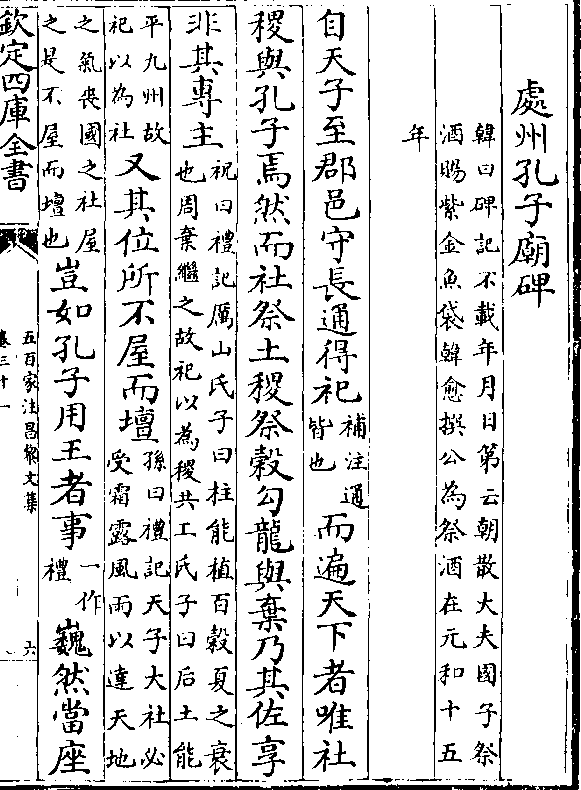 處州孔子廟碑
韓曰碑記不載年月日第云朝散大夫國子祭
酒賜紫金魚袋韓愈撰公為祭酒在元和十五
年
自天子至郡邑守長通得祀補注通皆也而遍天下者唯社
稷與孔子焉然而社祭土稷祭穀勾龍與棄乃其佐享
非其專主祝曰禮記厲山氏子曰柱能植百穀夏之衰也周棄繼之故祀以為稷共工氏子曰后土能
平九州故祀以為社又其位所不屋而壇孫曰禮記天子大社必受霜露風雨以達天地
之氣喪國之社屋之是不屋而壇也豈如孔子用王者事一作禮巍然當座
欽定四庫全書
五百家注昌黎文集
卷三十一
六